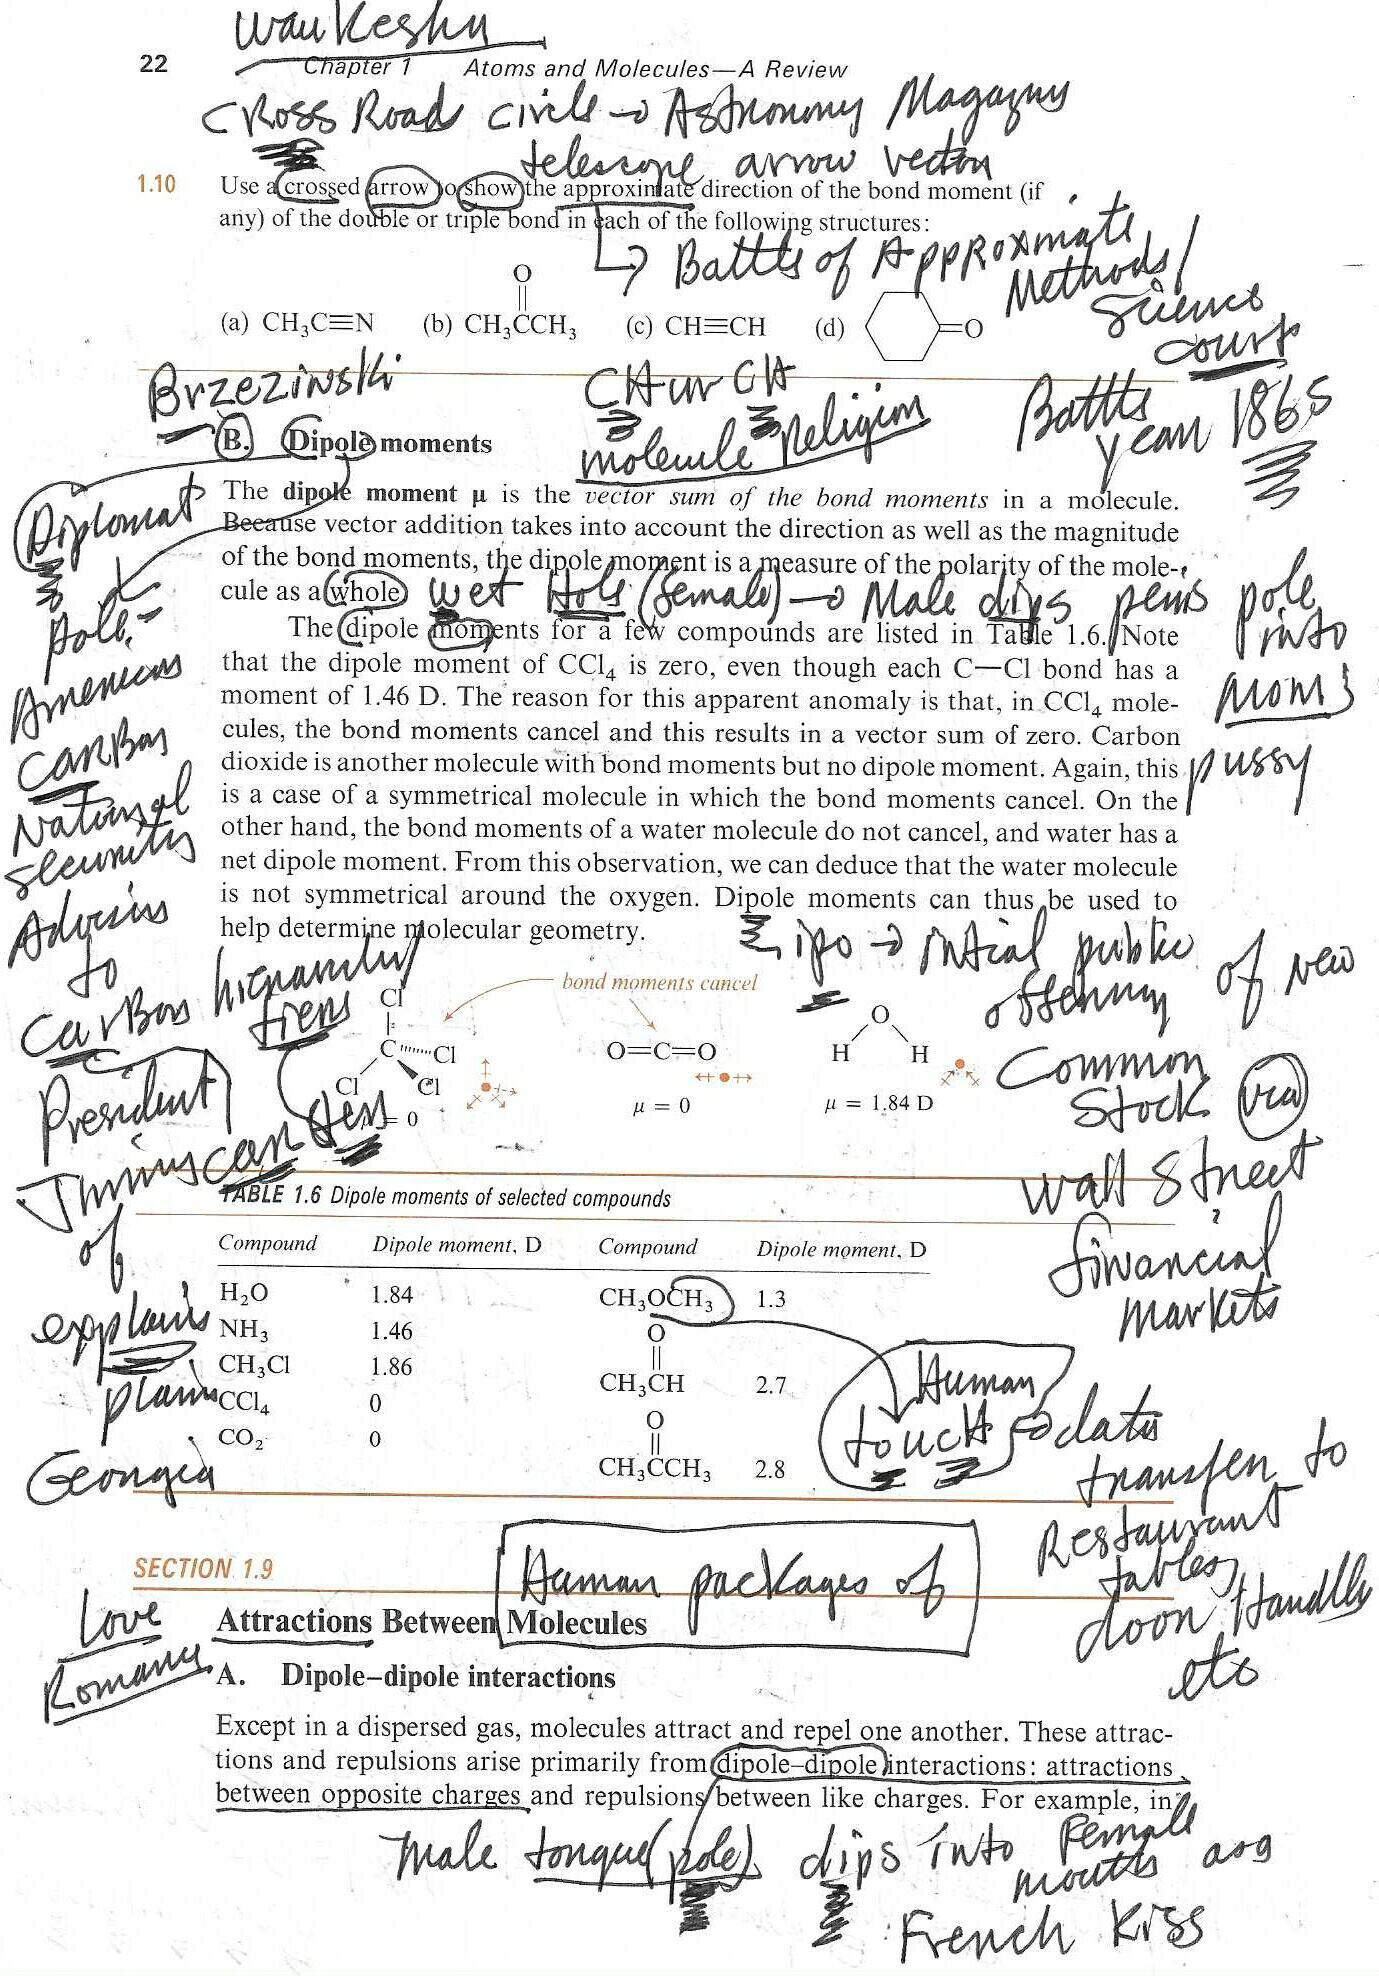 Waukesha
22 Chapter 1 Atoms and Molecules—A Review
CROSS Road circle → Astronomy Magazine
telescope arrow vector
1.10 Use a crossed arrow to show the approximate direction of the bond moment (if
any) of the double or triple bond in each of the following structures:
→ Battle of Approximate
Methods/
Science
Court
(a) CH₃C≡N (b) CH₃CCH₃ (c) CH≡CH (d) =O
O
Brzezinski
CHurCH
molecule Religion
Battle
year 1865
B. Dipole moments
The dipole moment μ is the vector sum of the bond moments in a molecule.
Because vector addition takes into account the direction as well as the magnitude
of the bond moments, the dipole moment is a measure of the polarity of the mole-
cule as a whole
wet Hole (female) → Male dips penis pole
into
mom's
pussy
The dipole moments for a few compounds are listed in Table 1.6. Note
that the dipole moment of CCl₄ is zero, even though each C—Cl bond has a
moment of 1.46 D. The reason for this apparent anomaly is that, in CCl₄ mole-
cules, the bond moments cancel and this results in a vector sum of zero. Carbon
dioxide is another molecule with bond moments but no dipole moment. Again, this
is a case of a symmetrical molecule in which the bond moments cancel. On the
other hand, the bond moments of a water molecule do not cancel, and water has a
net dipole moment. From this observation, we can deduce that the water molecule
is not symmetrical around the oxygen. Dipole moments can thus be used to
help determine molecular geometry.
Diplomat
Pole-
American
CARBon
National
Security
Advisor
to
Carbon
President
Jimmy carter
of
explains
plains
Georgia
hierarchy
tiers
ters
ipo → initial public
offering of new
Common
Stock via
Wall Street
financial
markets
bond moments cancel
Cl
C Cl
Cl Cl
μ = 0
O=C=O
μ = 0
O
H H
μ = 1.84 D
TABLE 1.6 Dipole moments of selected compounds
Compound Dipole moment, D Compound Dipole moment, D
H₂O 1.84 CH₃OCH₃ 1.3
NH₃ 1.46
O
CH₃Cl 1.86 CH₃CH 2.7
CCl₄ 0
O
CO₂ 0 CH₃CCH₃ 2.8
Human
touCH → data
transfer to
Restaurant
tables,
door Handle
etc
SECTION 1.9
Human packages of
Love
Romance
Attractions Between Molecules
A. Dipole–dipole interactions
Except in a dispersed gas, molecules attract and repel one another. These attrac-
tions and repulsions arise primarily from dipole–dipole interactions: attractions
between opposite charges and repulsions between like charges. For example, in
male tongue (pole) dips into Female
mouth
French Kiss